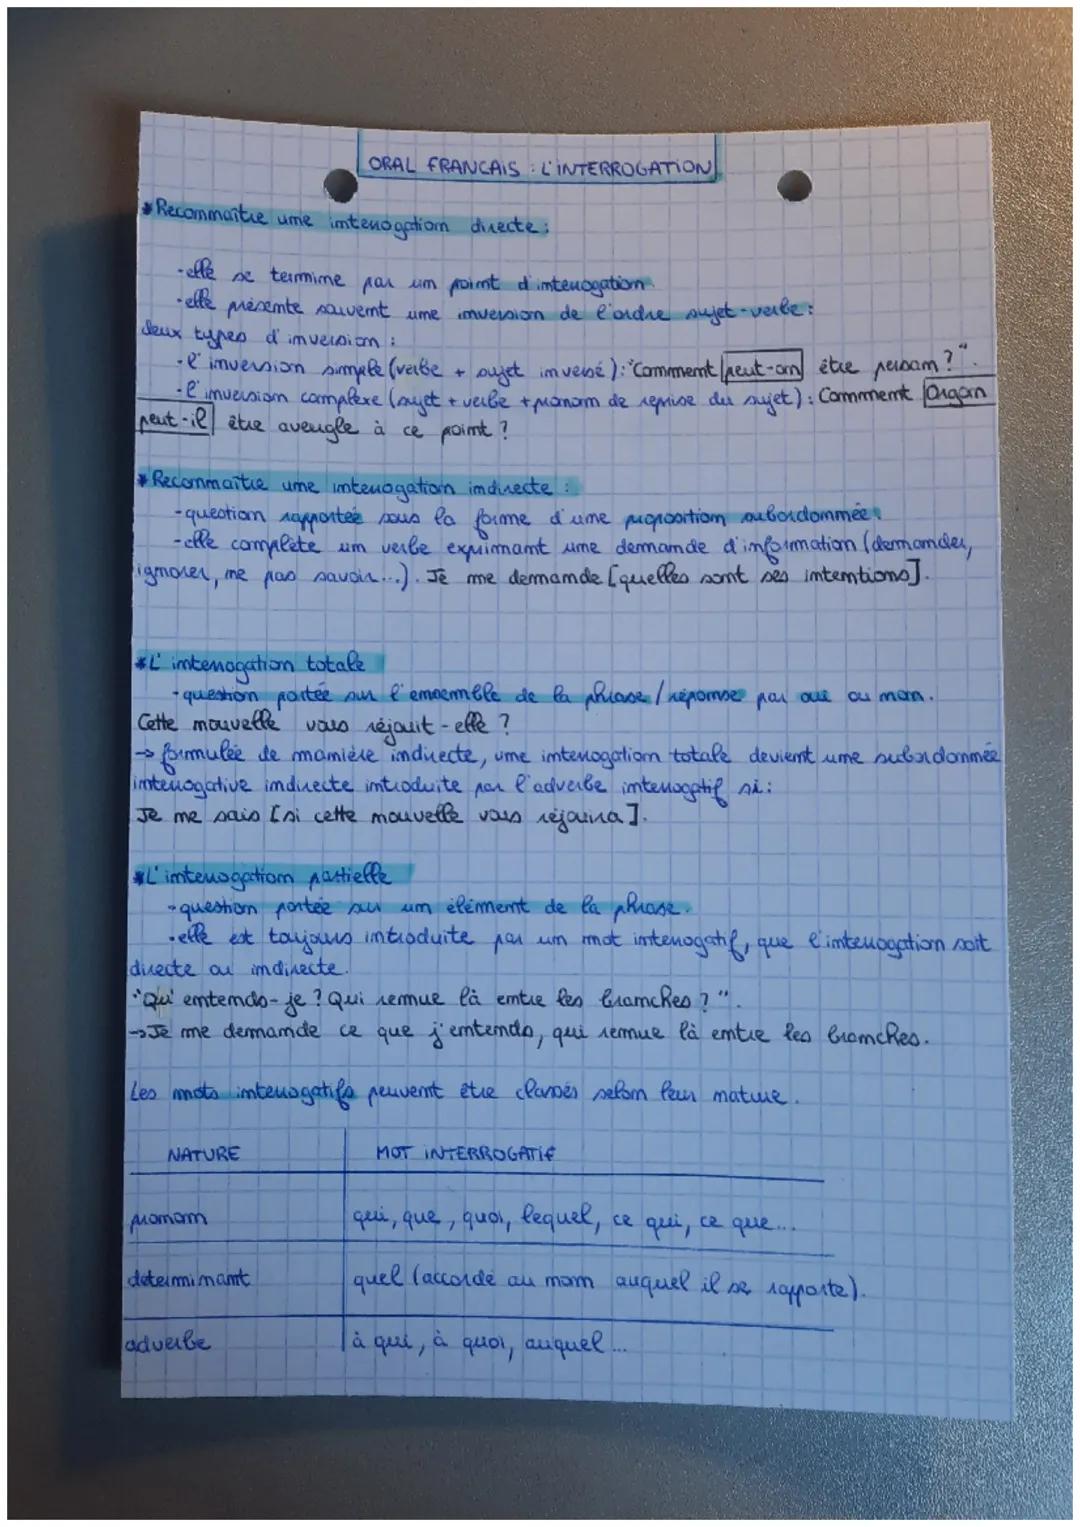 ORAL FRANCAIS : L'INTERROGATION
* Reconnaître une interrogation directe :
- elle se termine par un point d'interrogation.
- elle présente souvent une inversion de l'ordre sujet-verbe :
deux types d'inversion :
- l'inversion simple (verbe + sujet inversé) : "Comment peut-on être persan ?".
- l'inversion complexe (sujet + verbe + pronom de reprise du sujet) : Comment Orgon
peut-il être aveugle à ce point ?
* Reconnaître une interrogation indirecte :
- question rapportée sous la forme d'une proposition subordonnée.
- elle complète un verbe exprimant une demande d'information (demander,
ignorer, ne pas savoir...). Je me demande [quelles sont ses intentions].
* L'interrogation totale
- question portée sur l'ensemble de la phrase / réponse par oui ou non.
Cette nouvelle vous réjouit-elle ?
→ formulée de manière indirecte, une interrogation totale devient une subordonnée
interrogative indirecte introduite par l'adverbe interrogatif si :
Je ne sais [si cette nouvelle vous réjouira].
* L'interrogation partielle
- question portée sur un élément de la phrase.
- elle est toujours introduite par un mot interrogatif, que l'interrogation soit
directe ou indirecte.
"Qu'entends-je ? Qui remue là entre les branches ?".
→ Je me demande ce que j'entends, qui remue là entre les branches.
Les mots interrogatifs peuvent être classés selon leur nature.
NATURE MOT INTERROGATIF
pronom qui, que, quoi, lequel, ce qui, ce que...
déterminant quel (accordé au nom auquel il se rapporte).
adverbe à qui, à quoi, auquel...